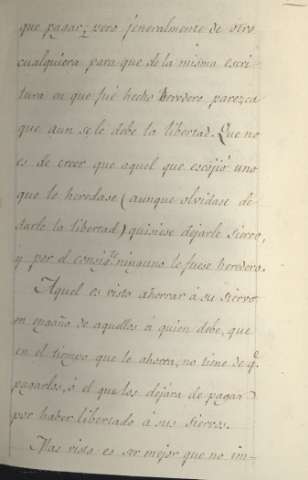 que pagar; pero jeneralmente de otro
cualquiera para que de la misma escri-
tura en que fué hecho heredero parezca
que aun se le debe la libertad. Que no
es de creer que aquel que escojió uno
que le heredase (aunque olvidase de
darle la libertad) quisiese dejarle siervo,
y por el consig.te ninguno le fuese heredero.
Aquel es visto ahorrar á su siervo
en engaño de aquellos á quien debe, que
en el tiempo que le ahorra, no tiene de q.e
pagarlos, ó el que los dejára de pagar
por haber libertado á sus siervos.
Mas visto es ser mejor que no im-